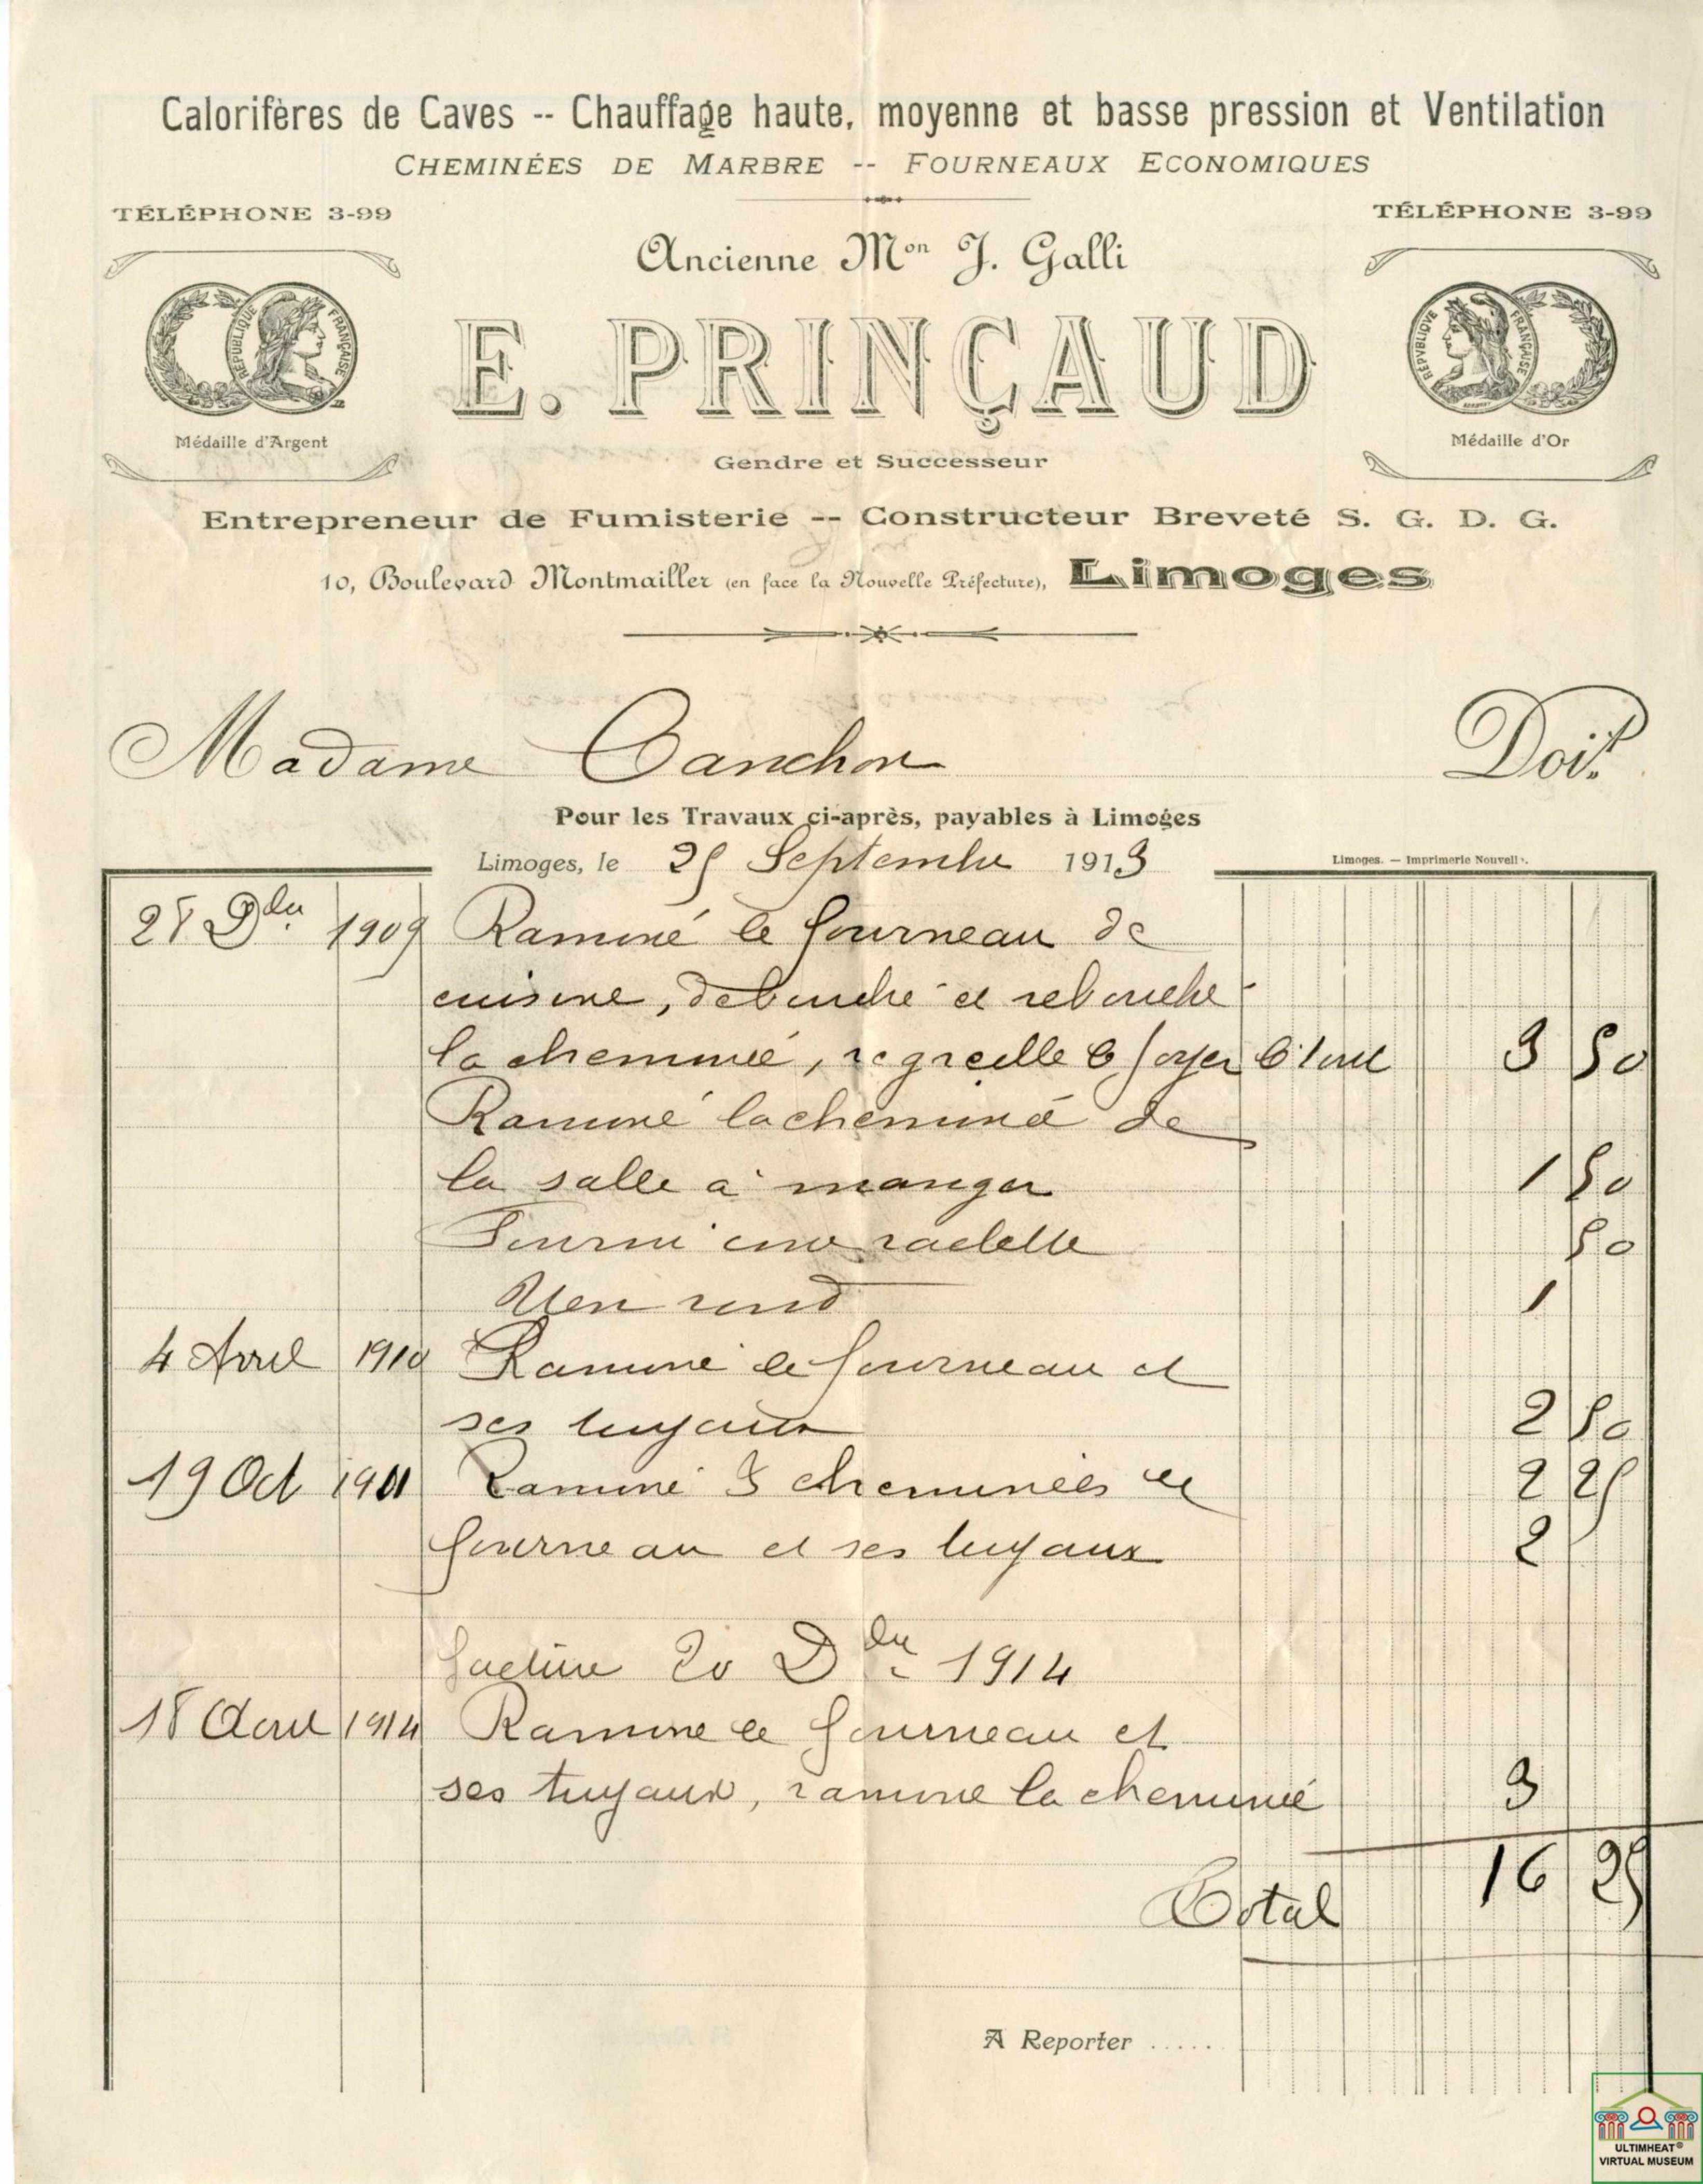 Calorifères de Caves -- Chauffage haute, moyenne et basse pression et Ventilation
CHEMINÉES DE MARBRE -- FOURNEAUX ECONOMIQUES
TÉLÉPHONE 3-99
TÉLÉPHONE 3-99
Ancienne Mon J. Galli
RÉPUBLIQUE FRANÇAISE
E. PRINÇAUD
RÉPVBLIQVE FRANÇAISE
Médaille d'Argent
Médaille d'Or
Gendre et Successeur
Entrepreneur de Fumisterie -- Constructeur Breveté S. G. D. G.
10, Boulevard Montmailler (en face la Nouvelle Préfecture), Limoges
Madame Canchon Doit
Pour les Travaux ci-après, payables à Limoges
Limoges, le 25 Septembre 1913
Limoges. — Imprimerie Nouvelle.
28 Dbre 1909 Ramoné le fourneau de
cuisine, debouché et rebouche
la cheminée, regreille le foyer le tout 3 50
Ramoné la cheminé de
la salle à manger 1 50
Fourni une raclette 50
rond 1
4 Avril 1910 Ramoné le fourneau et
ses tuyaux 2 50
19 Oct 1911 Ramoné 3 cheminées le 2 25
fourneau et ses tuyaux 2
facture 20 Dbre 1914
18 Avril 1914 Ramone le fourneau et
ses tuyaux, ramone la cheminée 3
Total 16 25
A Reporter .....
ULTIMHEAT®
VIRTUAL MUSEUM